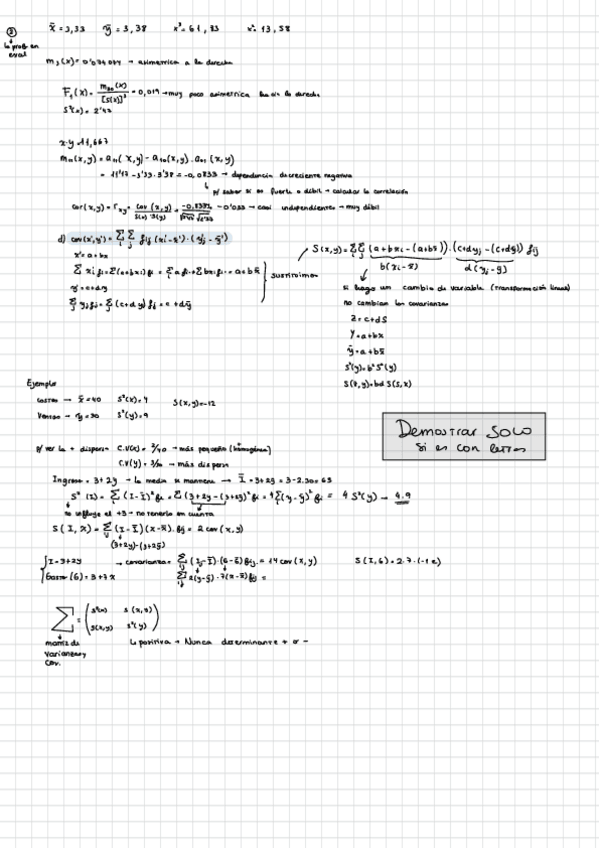 ②
x̄ = 3,33   ȳ = 3,38   x³ = 61,83   x² = 13,58
la prof en
eval
m₃(x) = 0'074074 → asimetrica a la derecha
F₁(x) = m₃₀(x) / [S(x)]³ = 0,019 → muy poco asimetrica hacia la derecha
S²(x) = 2'47
x·y = 11,667
m₁₁(x,y) = a₁₁(x,y) - a₁₀(x,y) . a₀₁(x,y)
= 11'17 - 3'33 . 3'38 = -0,0833 → dependencia decreciente negativa
p/ saber si es fuerte o débil → calcular la correlación
cor(x,y) = rₓᵧ = cov(x,y) / S(x)·S(y) = -0'033 → casi independientes → muy débil
d) cov(x',y') = Σ Σ fij (xi' - x̄') . (yj' - ȳ')
x' = a + bx
Σ xi fi = Σ(a+bxi) fi = Σ a fi + Σ bxi fi = a + bx̄
y' = c + dy
Σ yj fj = Σ(c+dy) fj = c + dȳ
sustituimos
S(x,y) = Σ Σ (a+bxi - (a+bx̄)) . (c+dyj - (c+dȳ)) fij
b(xi - x̄)   d(yj - ȳ)
si hago un cambio de variable (transformación lineal)
no cambian las covarianzas
Z = c + dS
Y = a + bx
ȳ = a + bx̄
S²(y) = b² S²(y)
S(z,y) = bd S(s,x)
Ejemplo
Costes → x̄ = 40   S²(x) = 4   S(x,y) = -12
Ventas → ȳ = 30   S²(y) = 9
Demostrar SOLO
si es con letras
p/ ver la + dispersa   C.V(x) = 2/40 → más pequeña (homogénea)
C.V(y) = 3/30 → más dispersa
Ingresos = 3 + 2y → la media se mantiene → Ī = 3 + 2ȳ = 3 - 2.30 = 63
S²(I) = Σ (I - Ī)² fi = Σ (3+2y - (3+2ȳ))² fi = 4 Σ (y - ȳ)² fi = 4 S²(y) → 4.9
no influye el +3 → no tenerlo en cuenta
S(I,x) = Σ (I - Ī)(x - x̄) . fij = 2 cov(x,y)
(3+2y) - (3+2ȳ)
I = 3 + 2y → covarianza = Σ (I - Ī) . (G - Ḡ) fij = 14 cov(x,y)   S(I,G) = 2.7.(-12)
Gastos (G) = 3 + 7x   Σ 2(y - ȳ) . 7(x - x̄) fij =
Σ = ( S²(x)   S(x,y)
S(x,y)   S²(y) )
matriz de
varianzas y
cov.
↳ positiva → Nunca determinante + o -